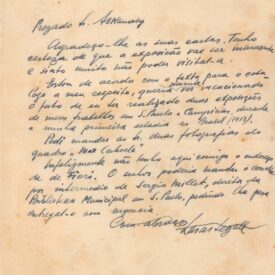 Prezado Sr. Askanasy
Agradeço-lhe as suas cartas. Tenho
certeza de que a exposição vae ser interessante
e sinto muito não poder visital-a.
Estou de acordo com o texto para o cata-
logo a meu respeito, queria somente ver mencionado
o fato de eu ter realizado duas exposições
de meus trabalhos em S. Paulo e Campinas durante
a minha primeira estada no Brasil (1913).
Pedi mandar ao sr. duas fotografias do
quadro "Mãe Cabocla"
Infelizmente não tenho aqui comigo o endereço
de de Fiori. O senhor poderia mandar o convite
por intermedio de Sergio Milliet, diretor da
Biblioteca Municipal em S. Paulo, pedindo-lhe para
entregal-o com urgencia.
Com abraços
Lasar Segall